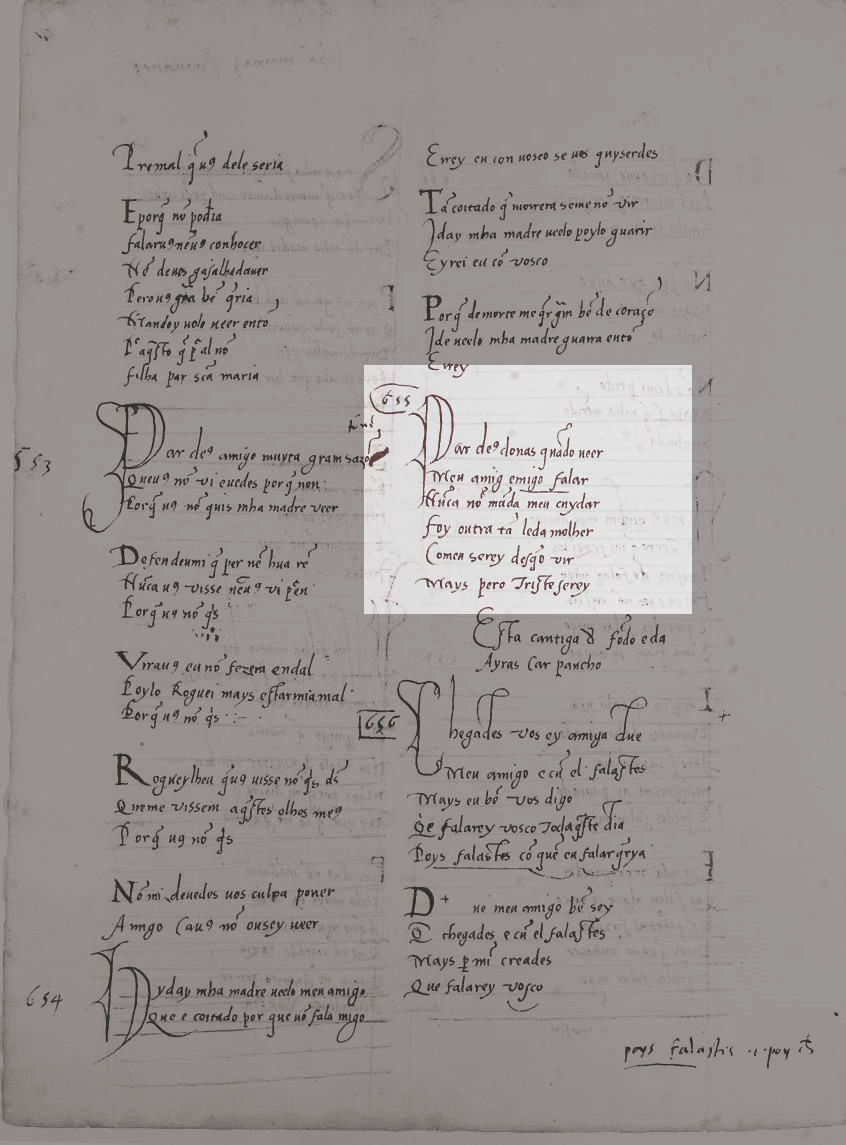 Premal q̃ uꝯ dele seria
E porq̃ nõ podia
falaruꝯ nẽuꝯ conhocer
Nẽ deuos gasalhadauer
Perouꝯ grã bẽ q̃ria
Mandoy uolo ueer entõ
filha par sc̃a maria
553
Par deꝯ amigo muyta gram sazõ
Queuꝯ nõ vi euedes porq̃ non
Porq̃ uꝯ nõ quis mha madre veer
Defendeumi q̃ per nẽ hũa rẽ
Nũca uꝯ visse nẽuꝯ vi
Porq̃ uꝯ nõ q̃s
Virauꝯ eu nõ fezera endal
Poylo Roguei mays estarmiamal
Porq̃ uꝯ nõ q̃s
Rogueylheu q̃uꝯ uisse nõ q̃s dꝯ
Queme vissem aq̃stes olhos meꝯ
Porq̃ uꝯ nõ q̃s
Nõ mi deuedes uos culpa poner
Amigo Cauꝯ nõ ousey ueer
654
Hyday mha madre ueelo meu amigo
Que e coitado por que nõ fala migo
Eirey eu con uosco se uos quyserdes
Tã coitado q̃ morrera seme nõ vir
Iday mha madre ueelo poylo guarir
Eyrei eu cõ vosco
Porq̃ demorte me q̃r q̃m bẽ de coraçõ
Ide ueelo mha madre guarra entõ
Eirey
655
Par deꝯ donas quãdo ueer
Meu amig emigo falar
Nũca nõ mũda meu cuydar
Foy outra tã leda molher
Comeu serey desq̃o vir
Mays pero Triste serey
Esta cantiga ꝺ fõdo e da
Ayras Carpancho
656
Chegades vos ey amiga due
Meu amigo e cũ el falastes
Mays eu bẽ vos digo
Q̃e falarey vosco Todaq̃ste dia
Poys falastes cõ quẽ eu falar q̃rya
D + ne meu amigo bẽ sey
Q̃ chegades e cũ el falastes
Mays ꝑ mĩ creades
Que falarey vosco
poys falastis